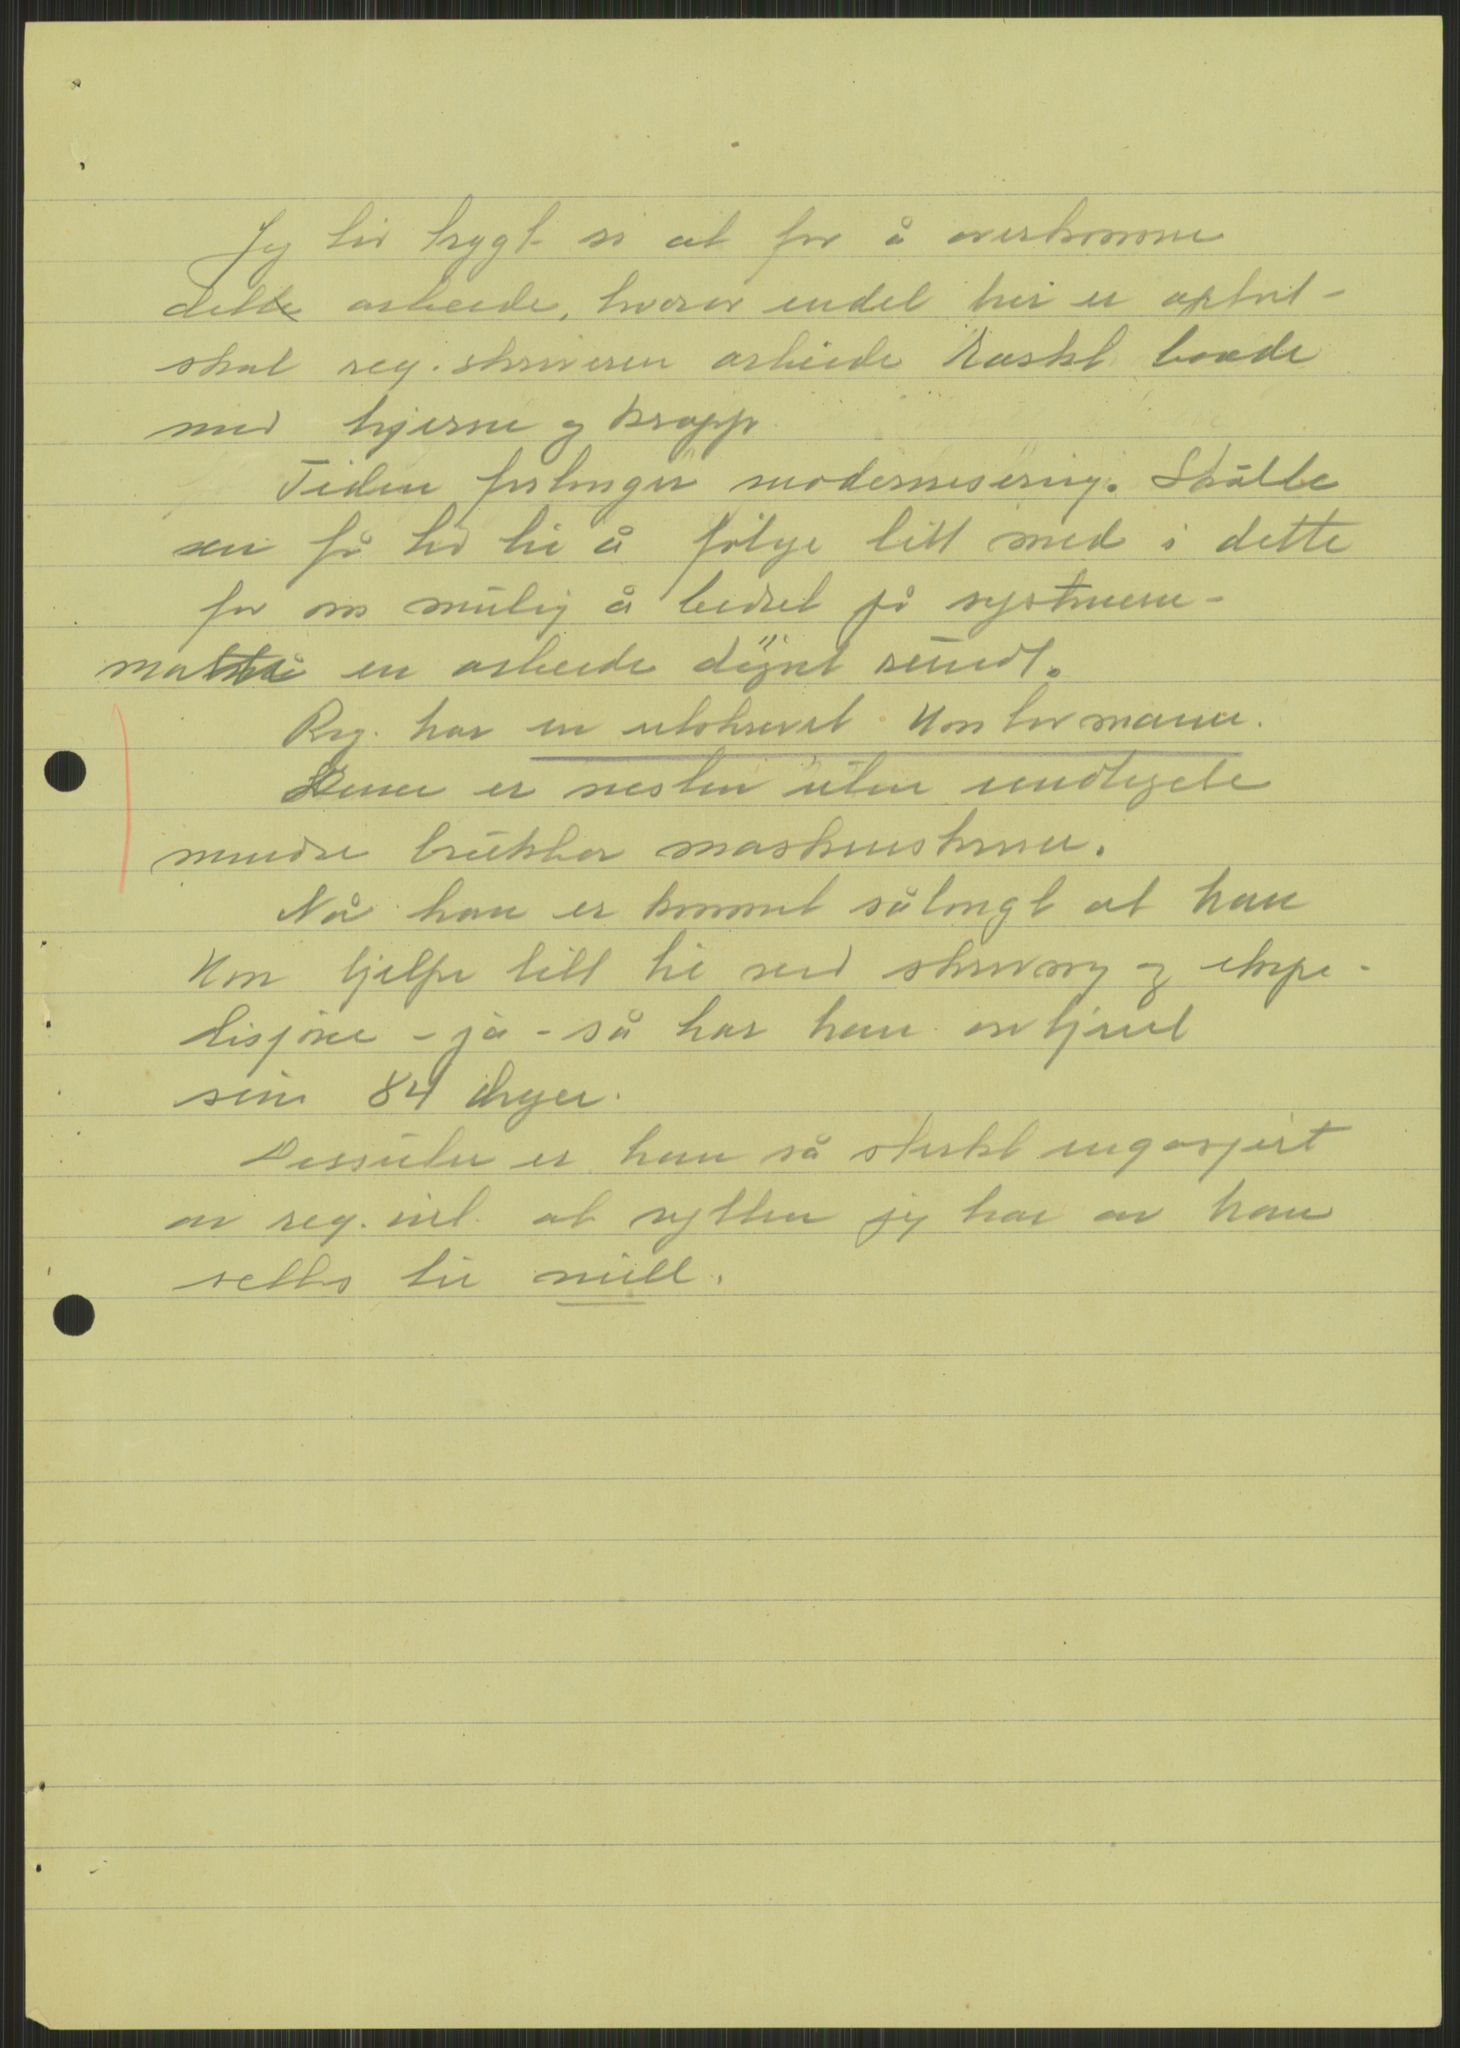 Jeg tør trygt si at for å overkomme
dette arbeide, hvorav endel her er optat -
skal reg. skriveren arbeide raskt baade
med hjerne og kropp.
Tiden forlanger modernisering. Skulle
en få tid til å følge litt med i dette
for om mulig å bedret på systemene -
måtte en arbeide døgnet rundt.
Reg. har en utskrevet Kontormann.
Denne er nesten uten undtagelse
mindre brukbar maskinskriver.
Nå han er kommet sålangt at han
kan hjelpe litt til ved skriving og ekspe-
disjone - ja - så har han avtjent
sine 84 dager.
Dessuten er han så sterkt engasjert
av reg. int. at nytten jeg har av ham
settes til null.